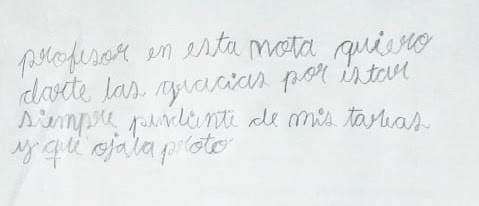 profesor en esta nota quiero
darte las gracias por estar
siempre pendiente de mis tareas
y que ojala proto